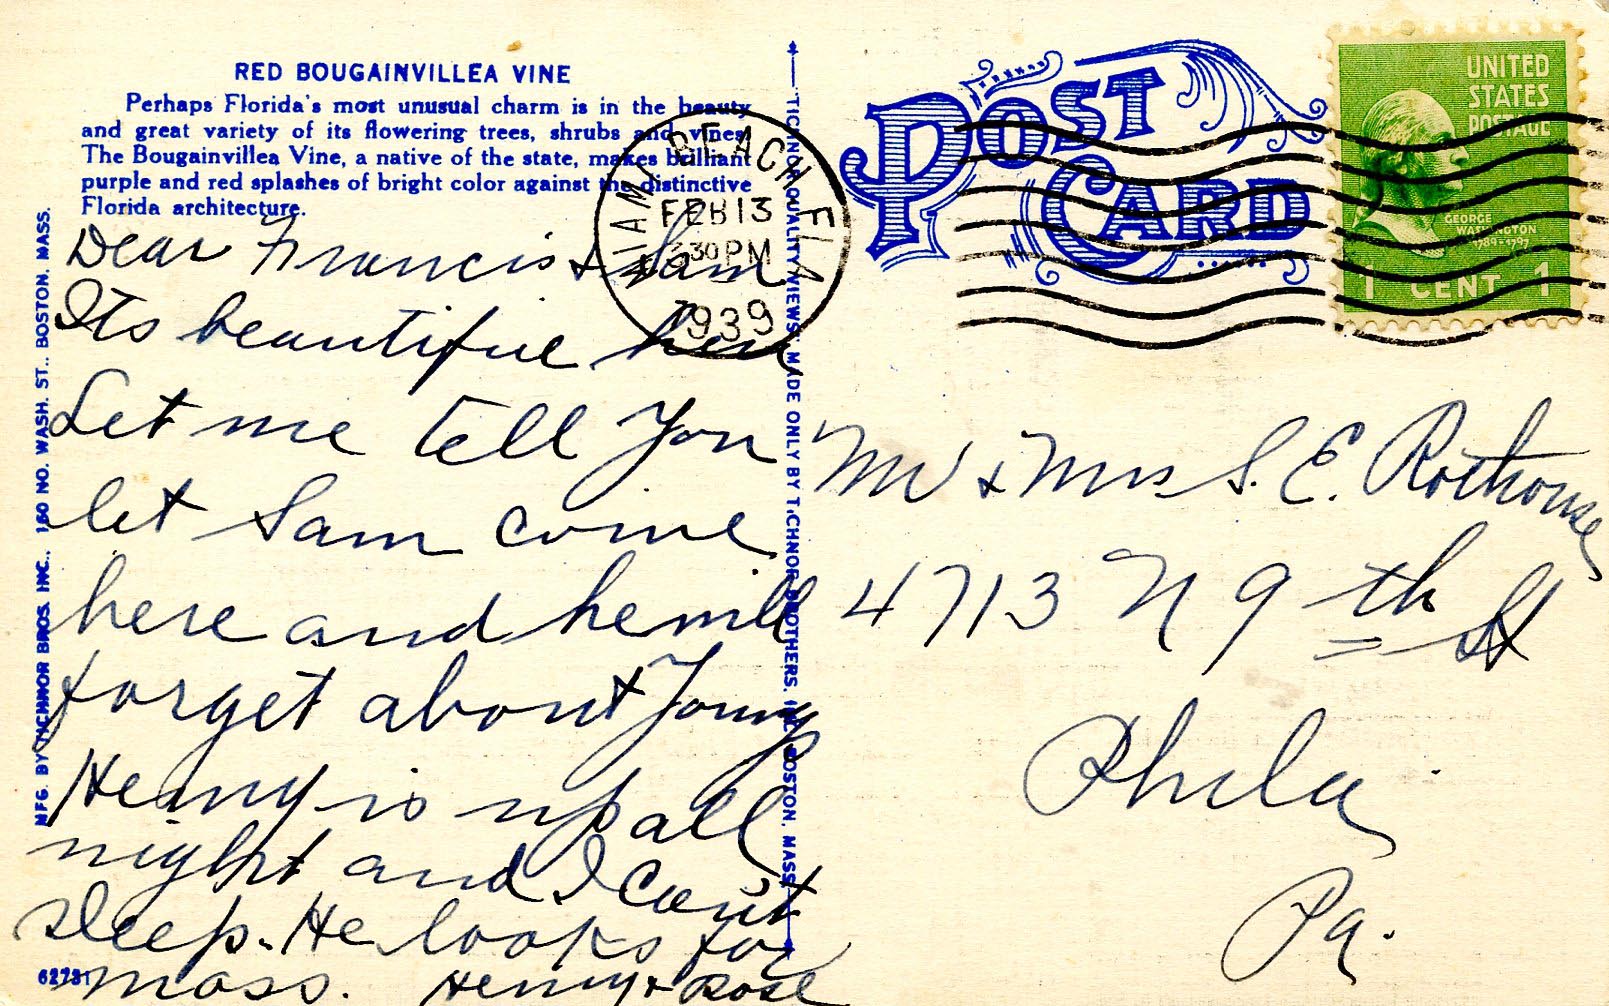 RED BOUGAINVILLEA VINE
Perhaps Florida's most unusual charm is in the beauty
and great variety of its flowering trees, shrubs and vines.
The Bougainvillea Vine, a native of the state, makes brilliant
purple and red splashes of bright color against the distinctive
Florida architecture.
Dear Francis & Sam
Its beautiful here
Let me tell You
let Sam come
here and he will
forget about Young
Henny is up all
night and I Can't
sleep. He looks for
moss. Henny & Rose
62731
MFG. BY TICHNOR BROS. INC., 160 NO. WASH. ST., BOSTON, MASS.
TICHNOR QUALITY VIEWS, MADE ONLY BY TICHNOR BROTHERS, INC., BOSTON, MASS.
MIAMI BEACH FLA
FEB 13
330 PM
1939
POST
CARD
UNITED
STATES
POSTAGE
GEORGE
WASHINGTON
1789-1797
1 CENT 1
Mr & Mrs S. E. Rothouse
4713 N 9th St
Phila
Pa.